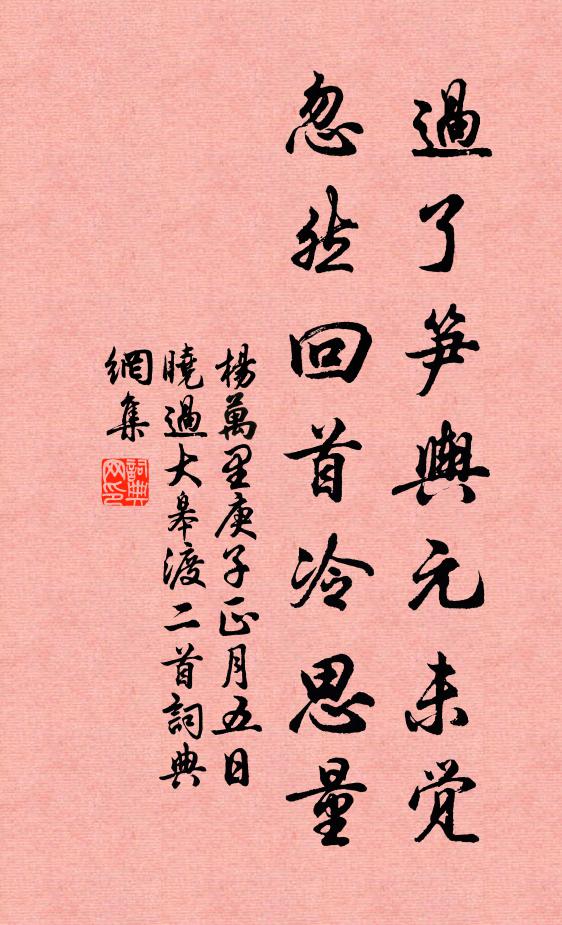 過了笋輿元未觉
忽然回首冷思量
楊萬里庚子正月五日
曉過大皋渡二首詞典
網集
詞典
网印